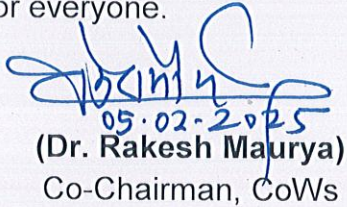 or everyone.
05.02-2025
(Dr. Rakesh Maurya)
Co-Chairman, CoWs